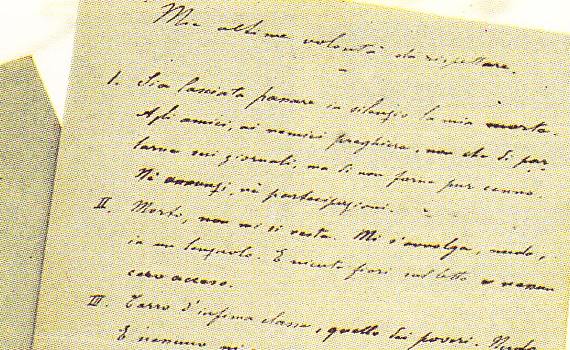 Mie ultime volontà da rispettare.
I. Sia lasciata passare in silenzio la mia morte.
Agli amici, ai nemici preghiera, non che di par-
larne sui giornali, ma di non farne pur cenno.
Nè annunzi, nè partecipazioni.
II. Morto, non mi si vesta. Mi s'avvolga, nudo,
in un lenzuolo. E niente fiori sul letto e nessun
cero acceso.
III. Carro d'infima classe, quello dei poveri. Nudo.
E nessuno mi